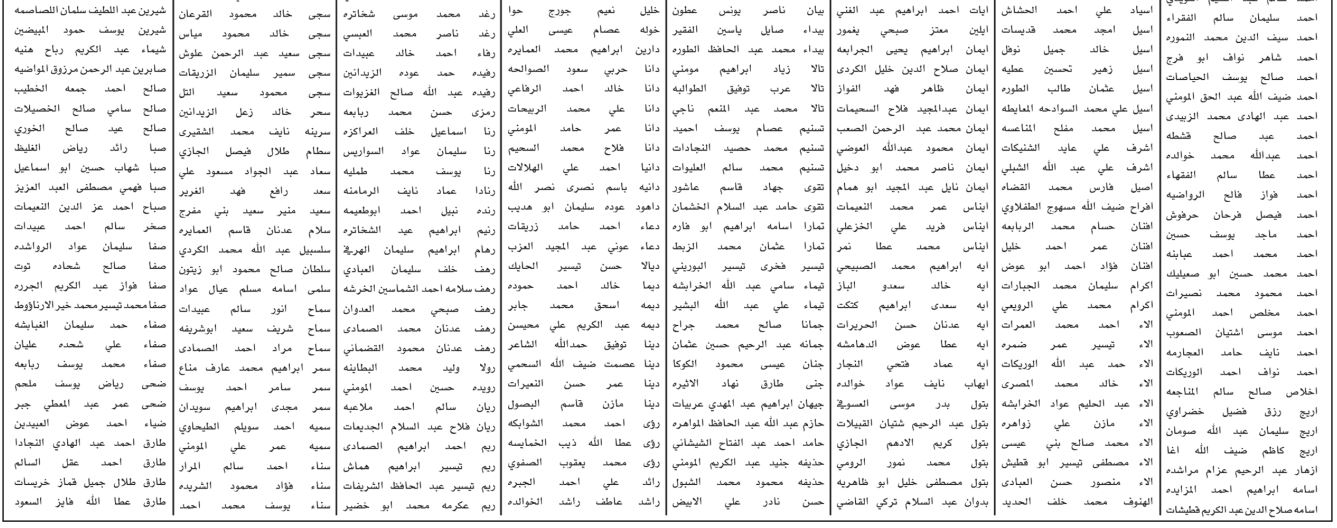 احمد سليمان سالم الفقراء
احمد سيف الدين محمد النموره
احمد شاهر نواف ابو فرج
احمد صالح يوسف الحياصات
احمد ضيف الله عبد الحق المومني
احمد عبد الهادى محمد الزبيدى
احمد عبد صالح قشطه
احمد عبدالله محمد خوالده
احمد عطا سالم الفقهاء
احمد فواز فالح الرواضيه
احمد فيصل فرحان حرفوش
احمد ماجد يوسف حسين
احمد محمد احمد عبابنه
احمد محمد حسين ابو صعيليك
احمد محمود محمد نصيرات
احمد مخلص احمد المومني
احمد موسى اشتيان الصعوب
احمد نايف حامد العجارمه
احمد نواف احمد الوريكات
اخلاص صالح سالم المناجعه
اريج رزق فضيل خضراوي
اريج سليمان عبد الله صومان
اريج كاظم ضيف الله اغا
ازهار عبد الرحيم عزام مراشده
اسامه ابراهيم احمد المزايده
اسامه صلاح الدين عبد الكريم قطيشات
اسياد علي احمد الحشاش
اسيل امجد محمد قديسات
اسيل خالد جميل نوفل
اسيل زهير تحسين عطيه
اسيل عثمان طالب الطوره
اسيل علي محمد السوادحه المعايطه
اسيل محمد مفلح المناعسه
اشرف علي عايد الشنيكات
اشرف علي عبد الله الشبلي
اصيل فارس محمد القضاه
افراح ضيف الله مسهوج الطفلاوي
افنان حسام محمد الربابعه
افنان عمر احمد خليل
افنان فؤاد احمد ابو عوض
اكرام سليمان محمد الجبارات
اكرام محمد علي الرويعي
الاء احمد محمد العمرات
الاء تيسير عمر ضمره
الاء حمد عبد الله الوريكات
الاء خالد محمد المصرى
الاء عبد الحليم عواد الخرابشه
الاء مازن علي زواهره
الاء محمد صالح بني عيسى
الاء مصطفى تيسير ابو قطيش
الاء منصور حسن العبادى
الهنوف محمد خلف الحديد
ايات احمد ابراهيم عبد الغني
ايلين معتز صبحي يغمور
ايمان ابراهيم يحيى الجرابعه
ايمان صلاح الدين خليل الكردى
ايمان ظاهر فهد الفواز
ايمان عبدالمجيد فلاح السحيمات
ايمان محمد عبد الرحمن الصعب
ايمان محمود عبدالله العوضي
ايمان ناصر محمد ابو دخيل
ايمان نايل عبد المجيد ابو همام
ايناس عمر محمد النعيمات
ايناس فريد علي الخزعلي
ايناس محمد عطا نمر
ايه ابراهيم محمد الصبيحي
ايه خالد سعدو الباز
ايه سعدى ابراهيم كتكت
ايه عدنان حسن الحريرات
ايه عطا عوض الدهامشه
ايه عماد فتحي النجار
ايهاب نايف عواد خوالده
بتول بدر موسى العسوفي
بتول عبد الرحيم شتيان القبيلات
بتول كريم الادهم الجازي
بتول محمد نمور الرومي
بتول مصطفى خليل ابو ظاهريه
بدوان عبد السلام تركي القاضي
بيان ناصر يونس عطون
بيداء صايل ياسين الفقير
بيداء محمد عبد الحافظ الطوره
تالا زياد ابراهيم مومني
تالا عرب توفيق الطوالبه
تالا محمد عبد المنعم ناجي
تسنيم عصام يوسف احميد
تسنيم محمد حصيد النجادات
تسنيم محمد سالم العليوات
تقوى جهاد قاسم عاشور
تقوى حامد عبد السلام الخشمان
تمارا اسامه ابراهيم ابو فاره
تمارا عثمان محمد الزبط
تيسير فخرى تيسير البوريني
تيماء سامي عبد الله الخرابشه
تيماء علي عبد الله البشير
جمانا صالح محمد جراح
جمانه عبد الرحيم حسين عثمان
جنان عيسى محمود الكوكا
جنى طارق نهاد الاثيره
جيهان ابراهيم عبد المهدي عربيات
حازم عبد الله عبد الحافظ المواهره
حامد احمد عبد الفتاح الشيشاني
حذيفه جنيد عبد الكريم المومني
حذيفه محمود محمد الشبول
حسن نادر علي الابيض
خليل نعيم جورج حوا
خوله عصام عيسى العلي
دارين ابراهيم محمد العمايره
دانا حربي سعود الصوالحه
دانا خالد احمد الرفاعي
دانا علي محمد الربيحات
دانا عمر حامد المومني
دانا فلاح محمد السحيم
دانيا احمد علي الهلالات
دانيه باسم نصرى نصر الله
داهود عوده سليمان ابو هديب
دعاء احمد حامد زريقات
دعاء عوني عبد المجيد العزب
ديالا حسن تيسير الحايك
ديما خالد احمد حموده
ديمه اسحق محمد جابر
ديمه عبد الكريم علي محيسن
دينا توفيق حمدالله الشاعر
دينا عصمت ضيف الله السحمي
دينا عمر حسن النعيرات
دينا مازن قاسم البصول
رؤى احمد محمد الشوابكه
رؤى عطا الله ذيب الخمايسه
رؤى محمد يعقوب الصفوي
رائد علي احمد الجبره
راشد عاطف راشد الخوالده
رغد محمد موسى شخاتره
رغد ناصر محمد العبسي
رفاء احمد خالد عبيدات
رفيده حمد عوده الزيدانين
رفيده عبد الله صالح الغزيوات
رمزى حسن محمد ربابعه
رنا اسماعيل خلف العراكزه
رنا سليمان عواد السواريس
رنا يوسف محمد طمليه
رنادا عماد نايف الرمامنه
رنده نبيل احمد ابوطعيمه
رنيم ابراهيم عيد الشخاتره
رهام ابراهيم سليمان الهرفي
رهف خلف سليمان العبادي
رهف سلامه احمد الشماسين الخرشه
رهف صبحي محمد العدوان
رهف عدنان محمد الصمادى
رهف عدنان محمود القضماني
رولا وليد محمد البطاينه
رويده حسين احمد المومني
ريان سالم احمد ملاعبه
ريان فلاح عبد السلام الجديعات
ريم احمد ابراهيم الصمادى
ريم تيسير ابراهيم هماش
ريم تيسير عبد الحافظ الشريفات
ريم عكرمه محمد ابو خضير
سجى خالد محمود القرعان
سجى خالد محمود مياس
سجى سعيد عبد الرحمن علوش
سجى سمير سليمان الزريقات
سجى محمود سعيد التل
سحر خالد زعل الزيدانين
سرينه نايف محمد الشقيرى
سطام طلال فيصل الجازي
سعاد عبد الجواد مسعود علي
سعد رافع فهد الغرير
سعيد منير سعيد بني مفرج
سلام عدنان قاسم العمايره
سلسبيل عبد الله محمد الكردي
سلطان صالح محمود ابو زيتون
سلمى اسامه مسلم عيال عواد
سماح انور سالم عبيدات
سماح شريف سعيد ابوشريفه
سماح مراد احمد الصمادى
سمر ابراهيم محمد عارف مناع
سمر سامر احمد يوسف
سمر مجدى ابراهيم سويدان
سميه احمد سويلم الطيحاوي
سميه عمر علي المومني
سناء احمد سالم المرار
سناء فؤاد محمود الشريده
سناء يوسف محمد احمد
شيرين عبد اللطيف سلمان اللصاصمه
شيرين يوسف حمود المبيضين
شيماء عبد الكريم رباح هنيه
صابرين عبد الرحمن مرزوق المواضيه
صالح احمد جمعه الخطيب
صالح سامي صالح الخصيلات
صالح عيد صالح الخوري
صبا رائد رياض الغليظ
صبا شهاب حسين ابو اسماعيل
صبا فهمي مصطفى العبد العزيز
صباح احمد عز الدين النعيمات
صخر سالم احمد عبيدات
صفا سليمان عواد الرواشده
صفا صالح شحاده توت
صفا فواز عبد الكريم الجرره
صفا محمد تيسير محمد خير الارناؤوط
صفاء حمد سليمان الغبابشه
صفاء علي شحده عليان
صفاء محمد يوسف ربابعه
ضحى رياض يوسف ملحم
ضحى عمر عبد المعطي جبر
ضياء احمد عوض العبيدين
طارق احمد عبد الهادي النجادا
طارق احمد عقل السالم
طارق طلال جميل قماز خريسات
طارق عطا الله فايز السعود